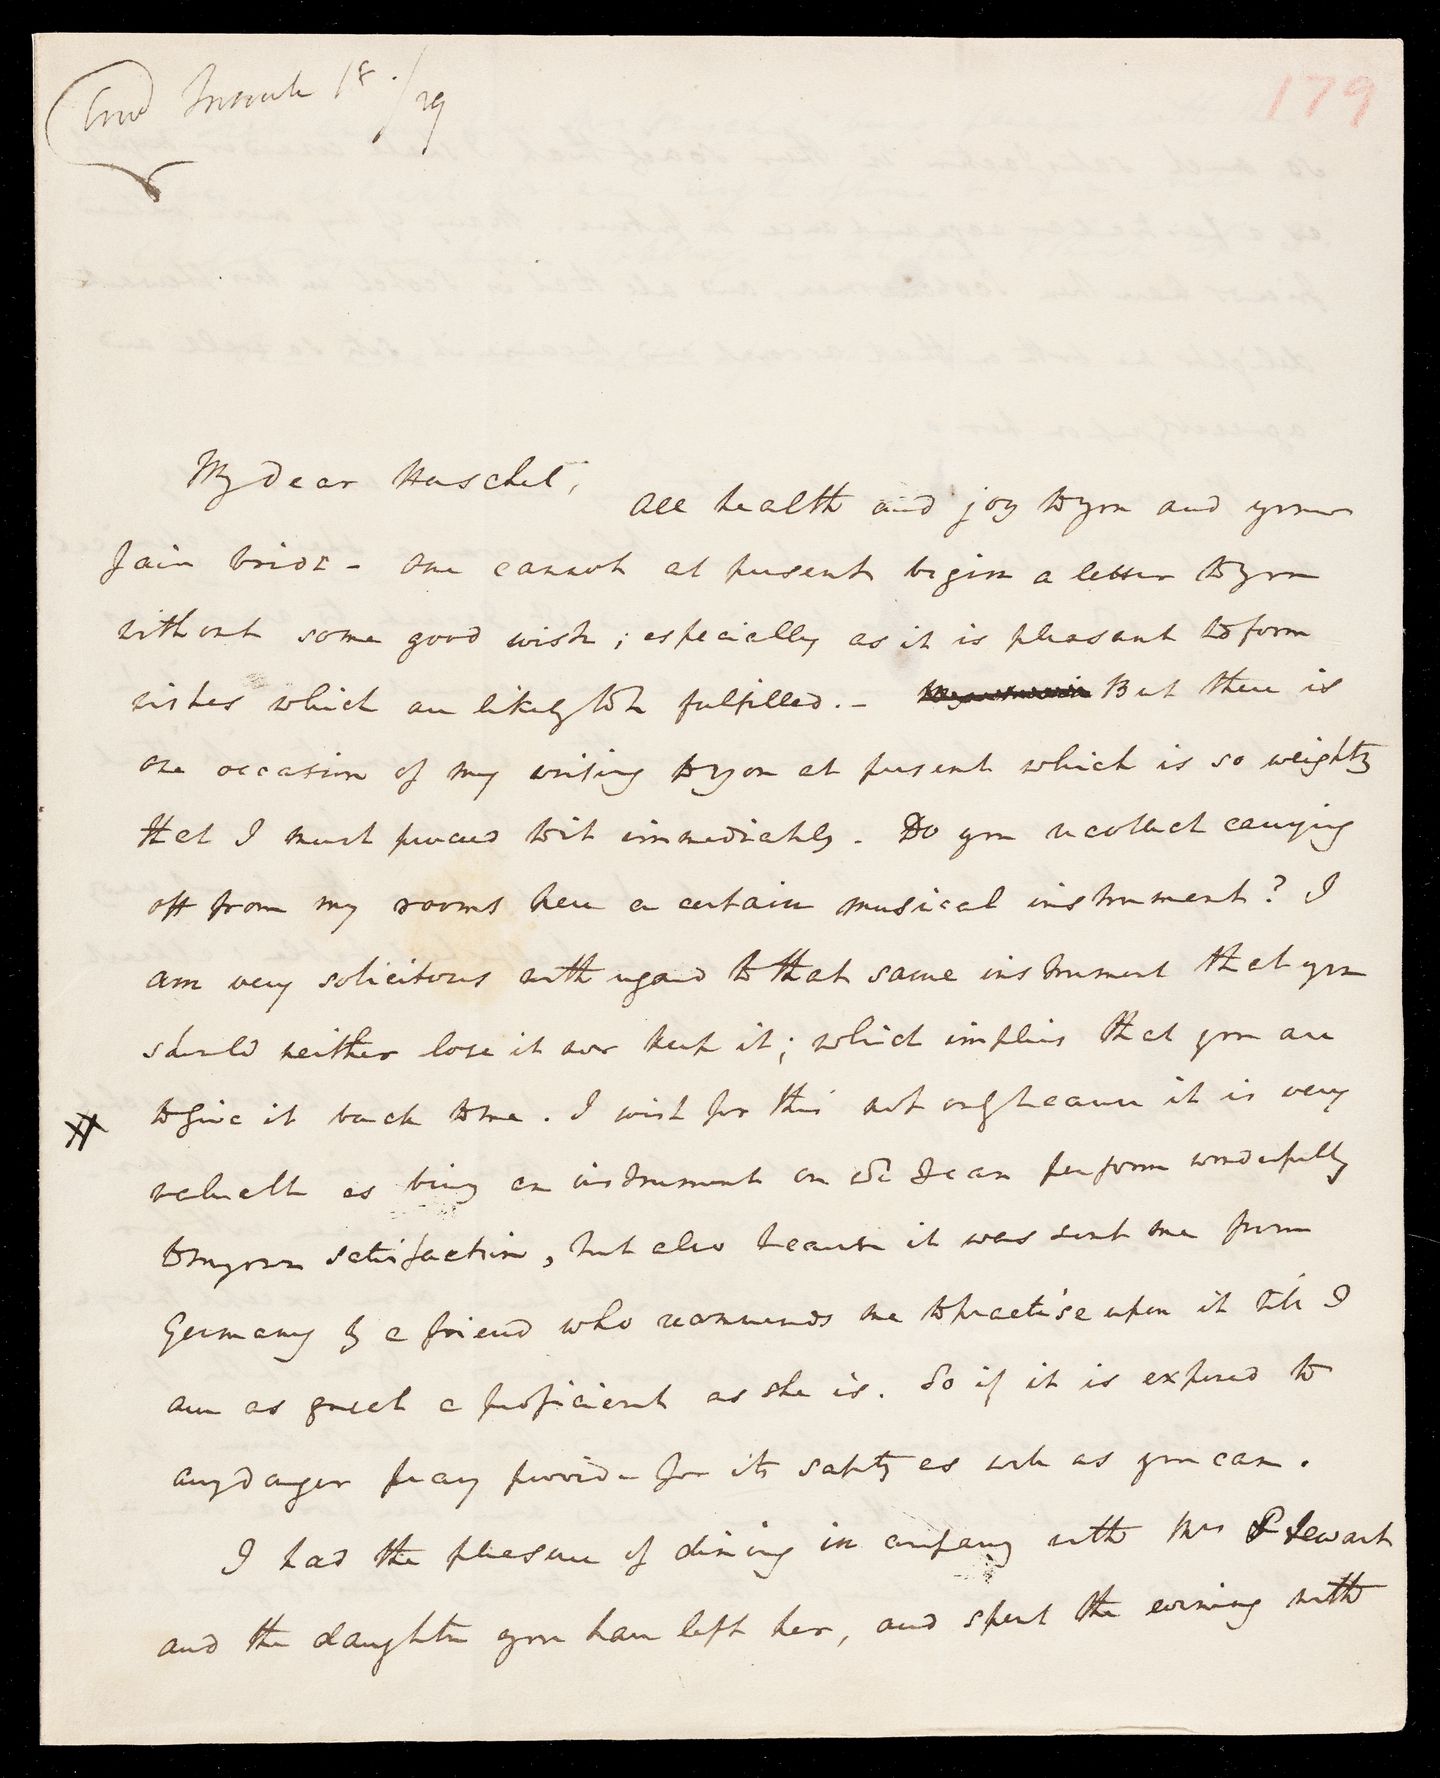 179
My dear Herschel,
All health and joy to you and your
fair bride - one cannot at present begin a letter to you
without some good wish; especially as it is pleasant to form
wishes which are likely to be fulfilled. - But there is
one occasion of my writing to you at present which is so weighty
that I must proceed to it immediately. Do you recollect carrying
off from my rooms here a certain musical instrument? I
am very solicitous with regard to that same instrument that you
should neither lose it nor keep it; which implies that you are
to give it back to me. I wish for this not only because it is very
valuable as being an instrument on wh I can perform wonderfully
to my own satisfaction, but also because it was sent me from
Germany by a friend who recommends me to practise upon it till I
am as great a proficient as she is. So if it is exposed to
any danger pray provide for its safety as well as you can.
I had the pleasure of dining in company with Mrs Stewart
and the daughter you have left her, and spent the evening with